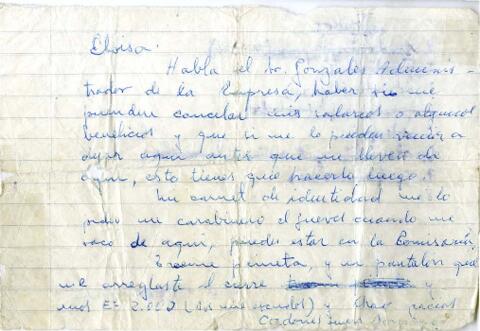 Eloisa.
Habla al Sr. Gonzales Adminis-
trador de la Empresa, haber si me
pueden cancelar mis salarios o algunos
beneficios y que si me lo pueden
aquí antes que me lleven de
aquí, esto tienes que hacerlo luego.
Mi carnet de identidad me lo
pidio un carabinero el jueves cuando me
saco de aquí, puede estar en la Comisaría
Traeme pimienta, y un pantalon que
me arreglaste el cierre y
unos E° 2.000 (dos mil escudos) y